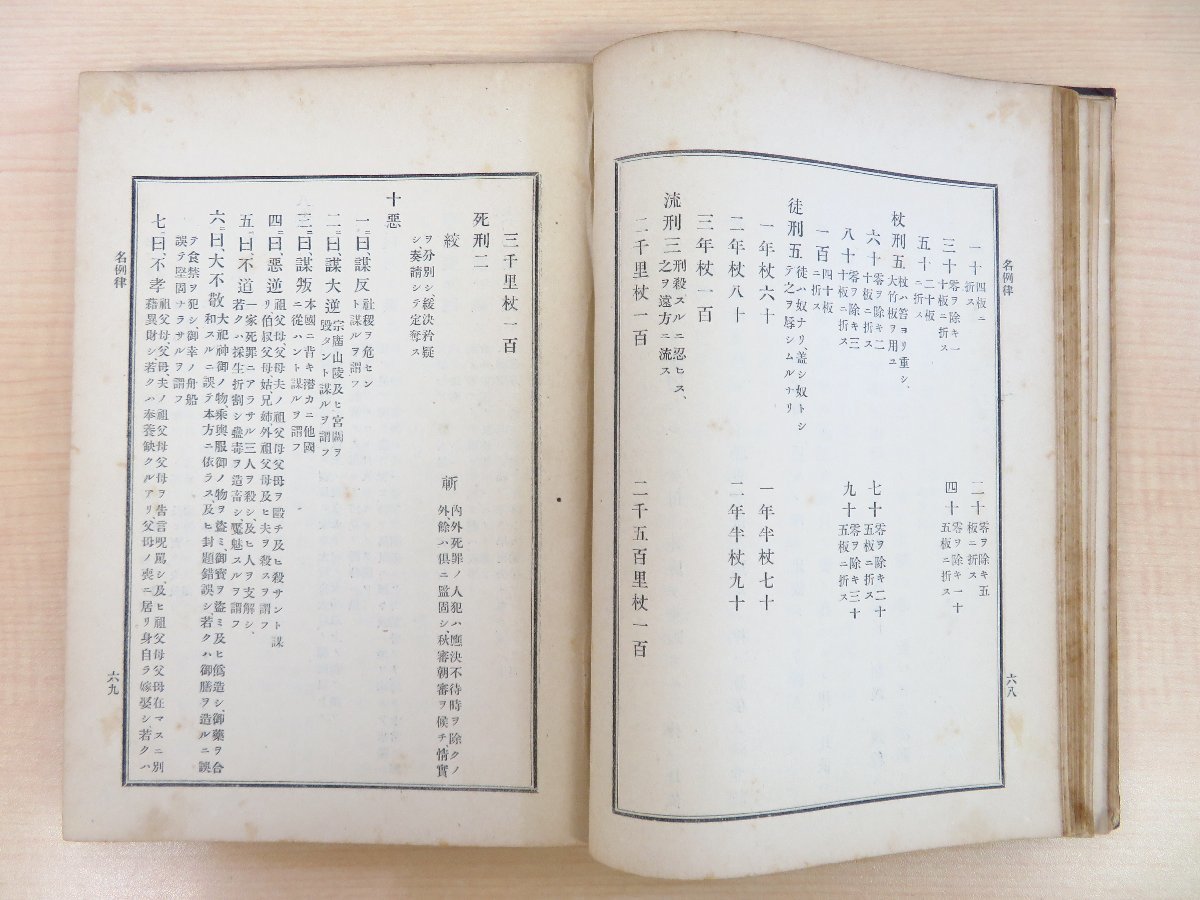 名例律
六八
一十 四板ニ折ス
二十 零ヲ除キ五板ニ折ス
三十 零ヲ除キ一十板ニ折ス
四十 零ヲ除キ一十五板ニ折ス
五十 二十板ニ折ス
杖刑五 杖ハ笞ヨリ重シ、大竹板ヲ用ユ
六十 零ヲ除キ二十板ニ折ス
七十 零ヲ除キ二十五板ニ折ス
八十 零ヲ除キ三十板ニ折ス
九十 零ヲ除キ三十五板ニ折ス
一百 四十板ニ折ス
徒刑五 徒ハ奴ナリ、蓋シ奴トシテ之ヲ辱シムルナリ
一年杖六十
一年半杖七十
二年杖八十
二年半杖九十
三年杖一百
流刑三 刑殺スルニ忍ヒス、之ヲ遠方ニ流ス
二千里杖一百
二千五百里杖一百
三千里杖一百
死刑二
絞
斬 內外死罪ノ人犯ハ應決不待時ヲ除クノ外餘ハ俱ニ監固シ秋審朝審ヲ候チ情實
ヲ分別シ緩決矜疑シ、奏請シテ定奪ス
十惡
一ニ曰、謀反 社稷ヲ危セント謀ルヲ謂フ
二ニ曰、謀大逆 宗廟山陵及ヒ宮闕ヲ毀タント謀ルヲ謂フ
三ニ曰、謀叛 本國ニ背キ潜カニ他國ニ從ハント謀ルヲ謂フ
四ニ曰、惡逆 祖父母、父母夫ノ祖父母父母ヲ毆チ及ヒ殺サント謀リ伯叔父母姑兄姉、外祖父母及ヒ夫ヲ殺スヲ謂フ
五ニ曰、不道 一家死罪ニアラサル三人ヲ殺シ及ヒ人ヲ支解シ、若クハ採生折割シ蠱毒ヲ造畜シ魘魅スルヲ謂フ
六ニ曰、大不敬 大祀神御ノ物乘輿服御ノ物ヲ盗ミ、御寶ヲ盗ミ及ヒ僞造シ、御藥ヲ合和スルニ誤テ本方ニ依ラス、及ヒ封題錯誤シ、若クハ御膳ヲ造ルニ誤
ヲ食禁ヲ犯シ、御幸ノ舟船誤テ堅固ナラサルヲ謂フ
七ニ曰、不孝 祖父母、父母、夫ノ祖父母父母ヲ告言呪罵シ、及ヒ祖父母父母在マスニ別籍異財シ、若クハ奉養缺クルアリ父母ノ喪ニ居リ身自ラ嫁娶シ、若クハ
名例律
六九